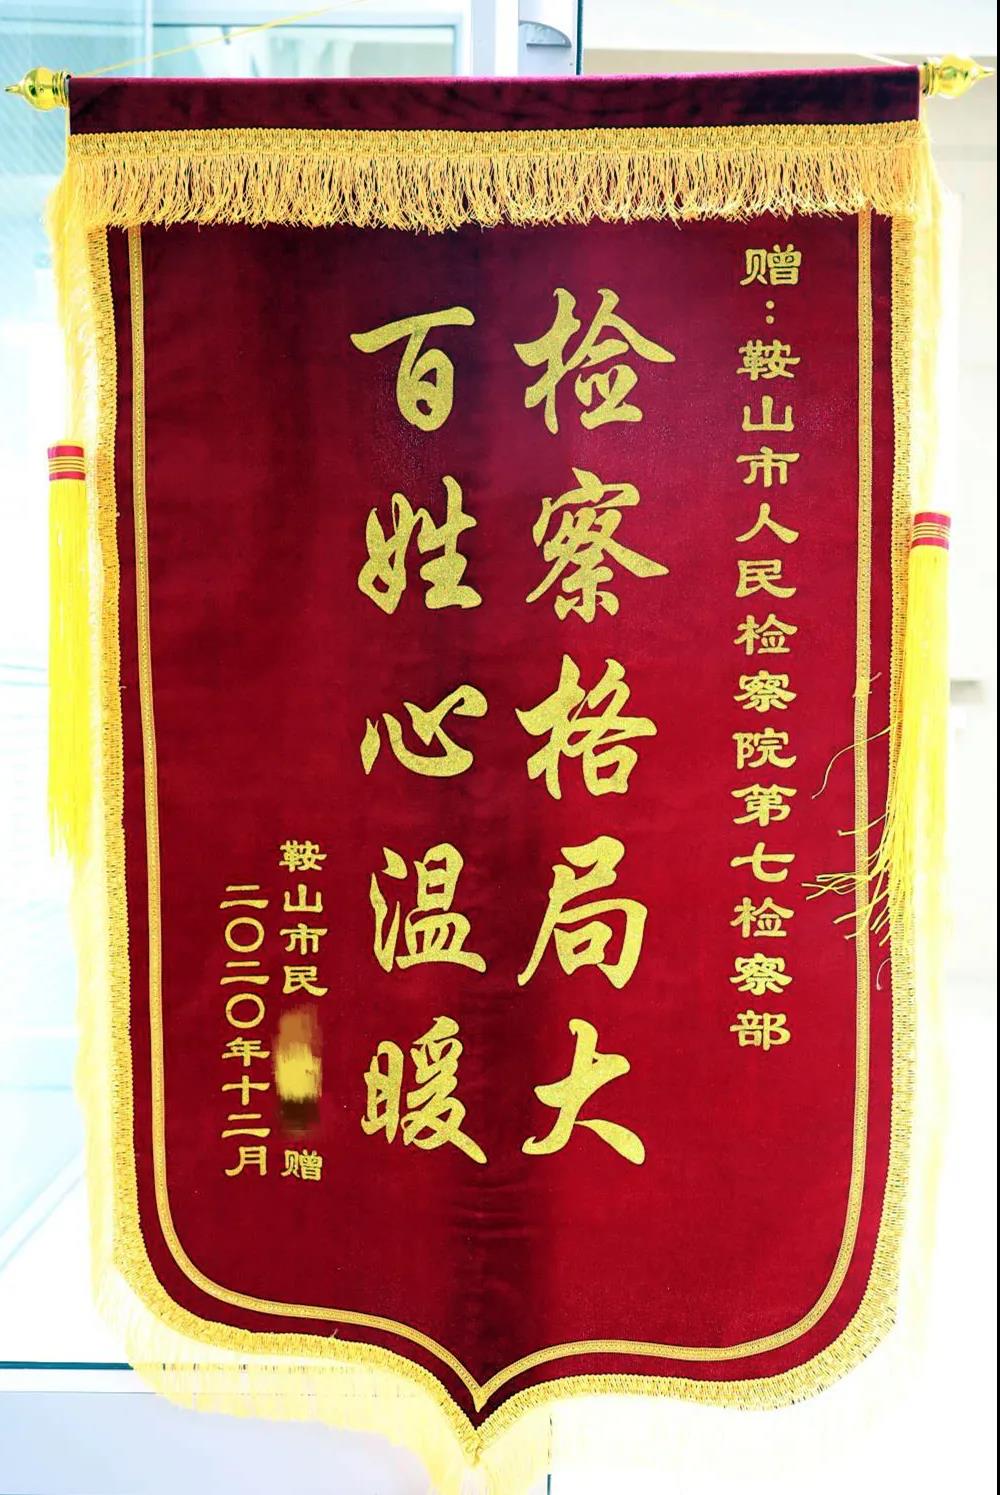 赠：鞍山市人民检察院第七检察部
检察格局大
百姓心温暖
鞍山市民 赠
二〇二〇年十二月